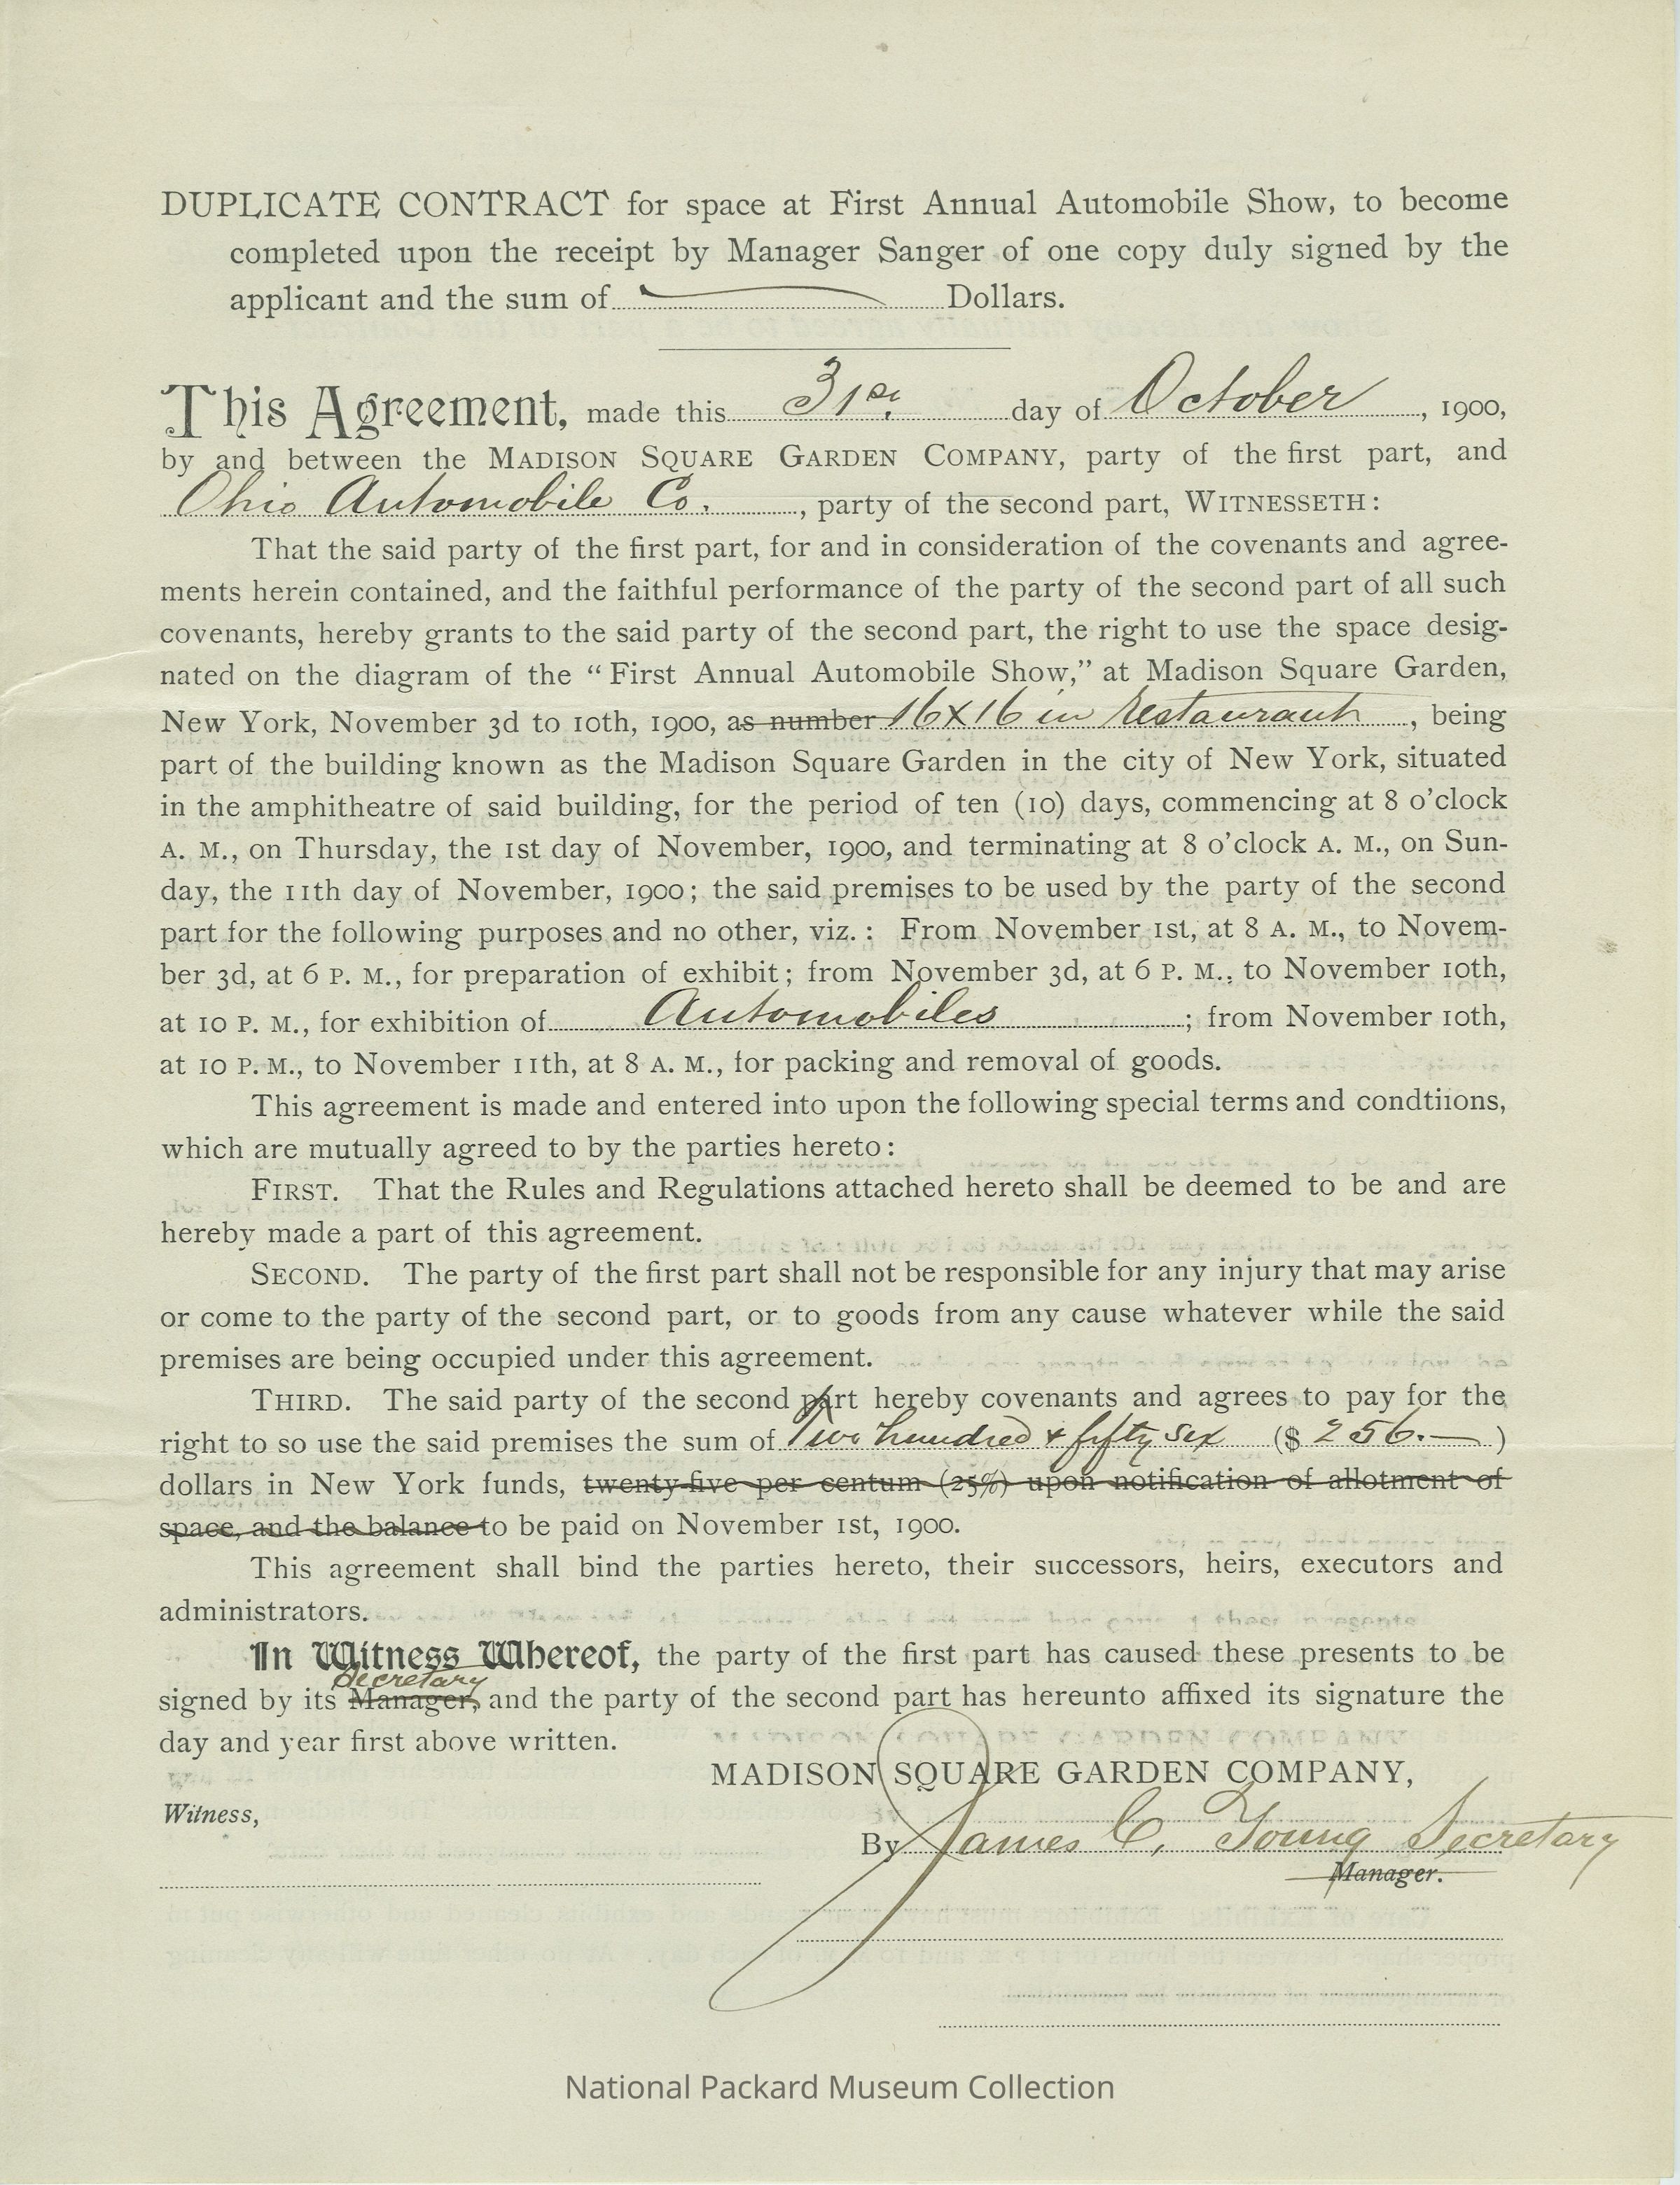 DUPLICATE CONTRACT for space at First Annual Automobile Show, to become
completed upon the receipt by Manager Sanger of one copy duly signed by the
applicant and the sum of Dollars.
This Agreement, made this 31st day of October, 1900,
by and between the MADISON SQUARE GARDEN COMPANY, party of the first part, and
Ohio Automobile Co., party of the second part, WITNESSETH:
That the said party of the first part, for and in consideration of the covenants and agree-
ments herein contained, and the faithful performance of the party of the second part of all such
covenants, hereby grants to the said party of the second part, the right to use the space desig-
nated on the diagram of the “First Annual Automobile Show,” at Madison Square Garden,
New York, November 3d to 10th, 1900, as number 16X16 in restaurant, being
part of the building known as the Madison Square Garden in the city of New York, situated
in the amphitheatre of said building, for the period of ten (10) days, commencing at 8 o’clock
A. M., on Thursday, the 1st day of November, 1900, and terminating at 8 o’clock A. M., on Sun-
day, the 11th day of November, 1900; the said premises to be used by the party of the second
part for the following purposes and no other, viz.: From November 1st, at 8 A. M., to Novem-
ber 3d, at 6 P. M., for preparation of exhibit; from November 3d, at 6 P. M., to November 10th,
at 10 P. M., for exhibition of Automobiles; from November 10th,
at 10 P. M., to November 11th, at 8 A. M., for packing and removal of goods.
This agreement is made and entered into upon the following special terms and condtiions,
which are mutually agreed to by the parties hereto:
FIRST. That the Rules and Regulations attached hereto shall be deemed to be and are
hereby made a part of this agreement.
SECOND. The party of the first part shall not be responsible for any injury that may arise
or come to the party of the second part, or to goods from any cause whatever while the said
premises are being occupied under this agreement.
THIRD. The said party of the second part hereby covenants and agrees to pay for the
right to so use the said premises the sum of Two hundred & fifty six ($ 256.—)
dollars in New York funds, twenty-five per centum (25%) upon notification of allotment of
space, and the balance to be paid on November 1st, 1900.
This agreement shall bind the parties hereto, their successors, heirs, executors and
administrators.
In Witness Whereof, the party of the first part has caused these presents to be
Secretary
signed by its Manager, and the party of the second part has hereunto affixed its signature the
day and year first above written.
MADISON SQUARE GARDEN COMPANY,
Witness,
By James C. Young Secretary
Manager.
National Packard Museum Collection